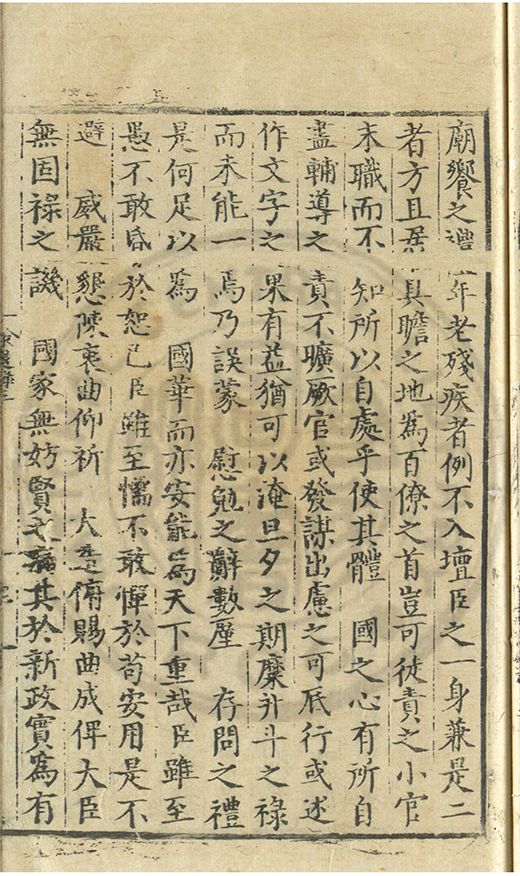 廟饗之禮年老殘疾者例不入壇臣之一身兼是二
者方且居具瞻之地為百僚之首豈可徒責之小官
末職而不知所以自處乎使其體 國之心有所自
盡輔導之責不曠厥官或發謀出慮之可底行或述
作文字之果有益猶可以淹旦夕之期糜升斗之祿
而未能一焉乃誤蒙 慰勉之辭數屢 存問之禮
是何足以為 國華而亦安能為天下重哉臣雖至
愚不敢昏於恕已臣雖至懦不敢憚於苟安用是不
避 威嚴懇陳衷曲仰祈 大造俯賜曲成俾大臣
無固祿之譏 國家無妨賢之病其於新政實為有